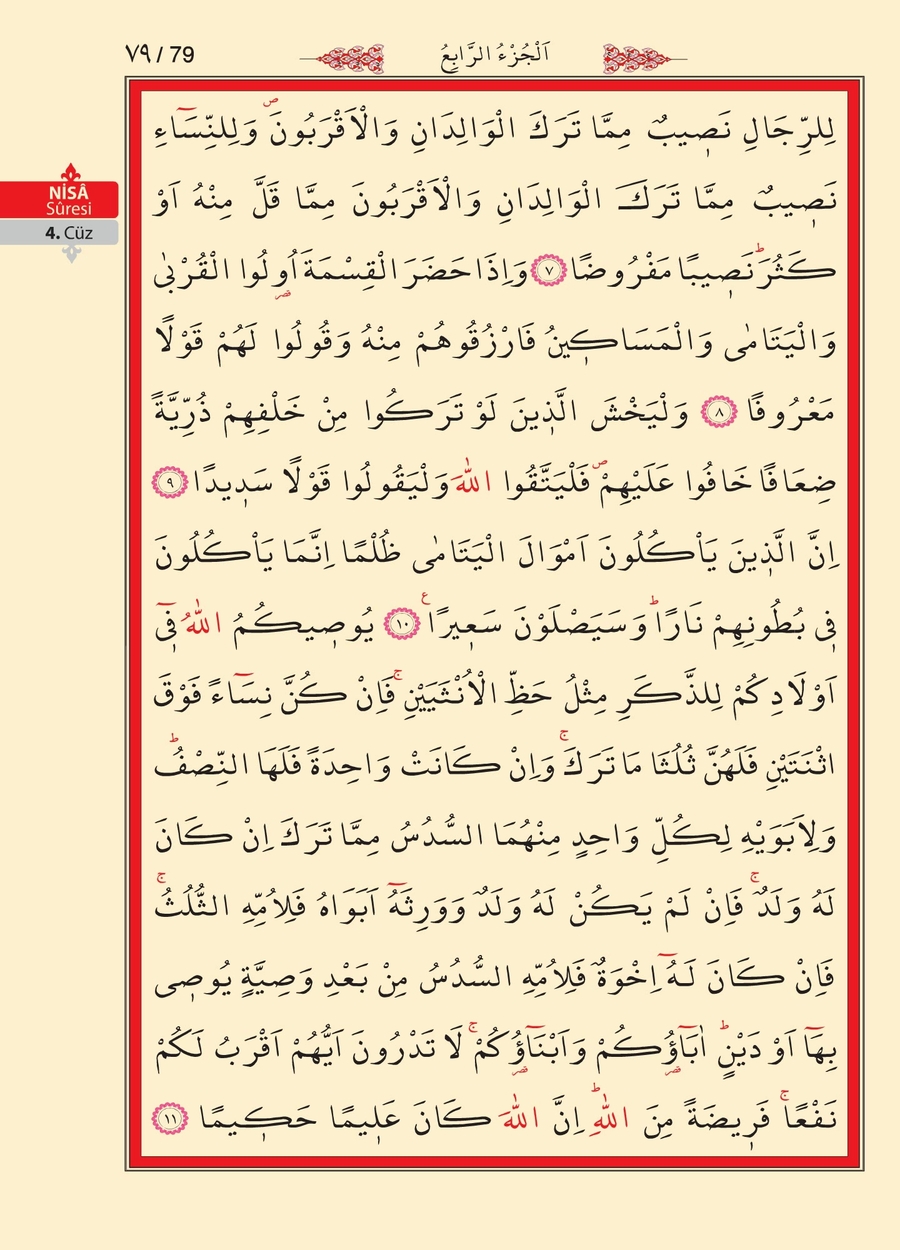 ٧٩ / 79
اَلْجُزْءُ الرَّابِعُ
NİSÂ
Sûresi
4. Cüz
لِلرِّجَالِ نَصٖيبٌ مِمَّا تَرَكَ الْوَالِدَانِ وَالْاَقْرَبُونَۖ وَلِلنِّسَٓاءِ
نَصٖيبٌ مِمَّا تَرَكَ الْوَالِدَانِ وَالْاَقْرَبُونَ مِمَّا قَلَّ مِنْهُ اَوْ
كَثُرَؕ نَصٖيبًا مَفْرُوضًا ﴿٧﴾ وَاِذَا حَضَرَ الْقِسْمَةَ اُو۬لُوا الْقُرْبٰى
وَالْيَتَامٰى وَالْمَسَاكٖينُ فَارْزُقُوهُمْ مِنْهُ وَقُولُوا لَهُمْ قَوْلًا
مَعْرُوفًا ﴿٨﴾ وَلْيَخْشَ الَّذٖينَ لَوْ تَرَكُوا مِنْ خَلْفِهِمْ ذُرِّيَّةً
ضِعَافًا خَافُوا عَلَيْهِمْۖ فَلْيَتَّقُوا اللّٰهَ وَلْيَقُولُوا قَوْلًا سَدٖيدًا ﴿٩﴾
اِنَّ الَّذٖينَ يَاْكُلُونَ اَمْوَالَ الْيَتَامٰى ظُلْمًا اِنَّمَا يَاْكُلُونَ
فٖى بُطُونِهِمْ نَارًاؕ وَسَيَصْلَوْنَ سَعٖيرًا ع ﴿١٠﴾ يُوصٖيكُمُ اللّٰهُ فٖٓى
اَوْلَادِكُمْ لِلذَّكَرِ مِثْلُ حَظِّ الْاُنْثَيَيْنِۚ فَاِنْ كُنَّ نِسَٓاءً فَوْقَ
اثْنَتَيْنِ فَلَهُنَّ ثُلُثَا مَا تَرَكَۚ وَاِنْ كَانَتْ وَاحِدَةً فَلَهَا النِّصْفُؕ
وَلِاَبَوَيْهِ لِكُلِّ وَاحِدٍ مِنْهُمَا السُّدُسُ مِمَّا تَرَكَ اِنْ كَانَ
لَهُ وَلَدٌۚ فَاِنْ لَمْ يَكُنْ لَهُ وَلَدٌ وَوَرِثَهُٓ اَبَوَاهُ فَلِاُمِّهِ الثُّلُثُۚ
فَاِنْ كَانَ لَهُٓ اِخْوَةٌ فَلِاُمِّهِ السُّدُسُ مِنْ بَعْدِ وَصِيَّةٍ يُوصٖى
بِهَٓا اَوْ دَيْنٍؕ اٰبَٓاؤُ۬كُمْ وَاَبْنَٓاؤُ۬كُمْۚ لَا تَدْرُونَ اَيُّهُمْ اَقْرَبُ لَكُمْ
نَفْعًاۚ فَرٖيضَةً مِنَ اللّٰهِؕ اِنَّ اللّٰهَ كَانَ عَلٖيمًا حَكٖيمًا ﴿١١﴾